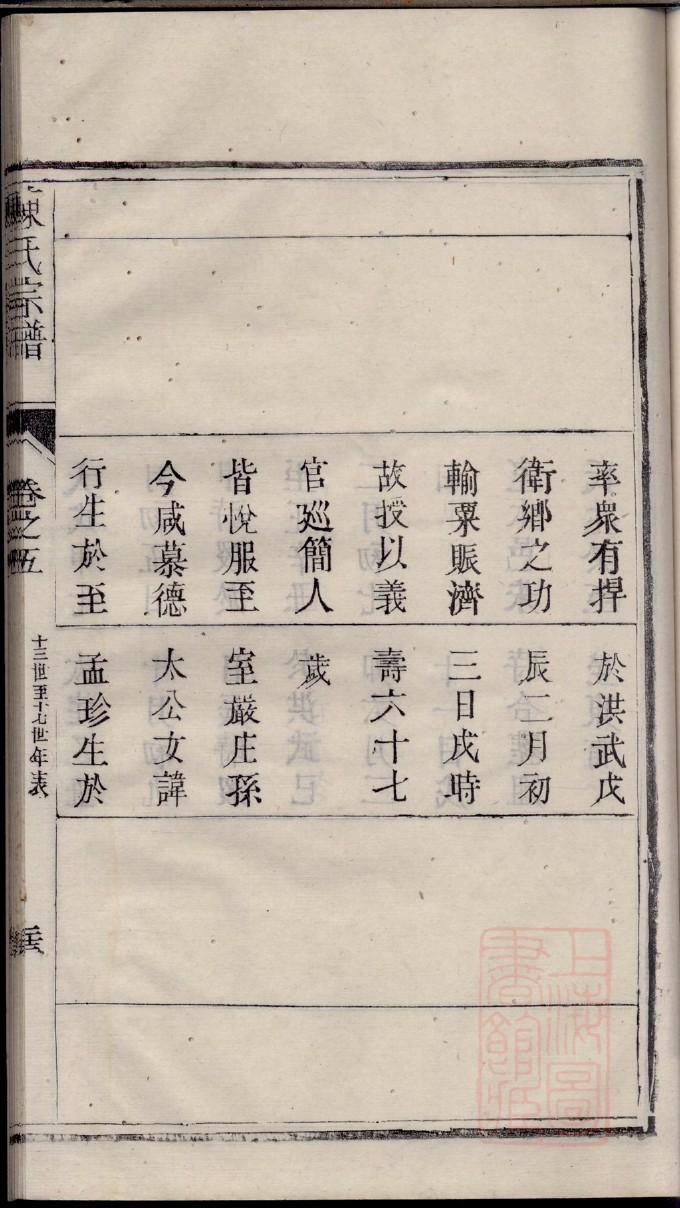 率衆有捍
衛鄉之功
輸粟賑濟
故授以義
官廵簡人
皆悅服至
今咸慕德
行生於至
於洪武戊
辰二月初
三日戌時
壽六十七
歲
室嚴庄孫
太公女諱
孟珍生於
陳氏宗譜
卷之五
十三世至十七世年表
上海圖書館藏